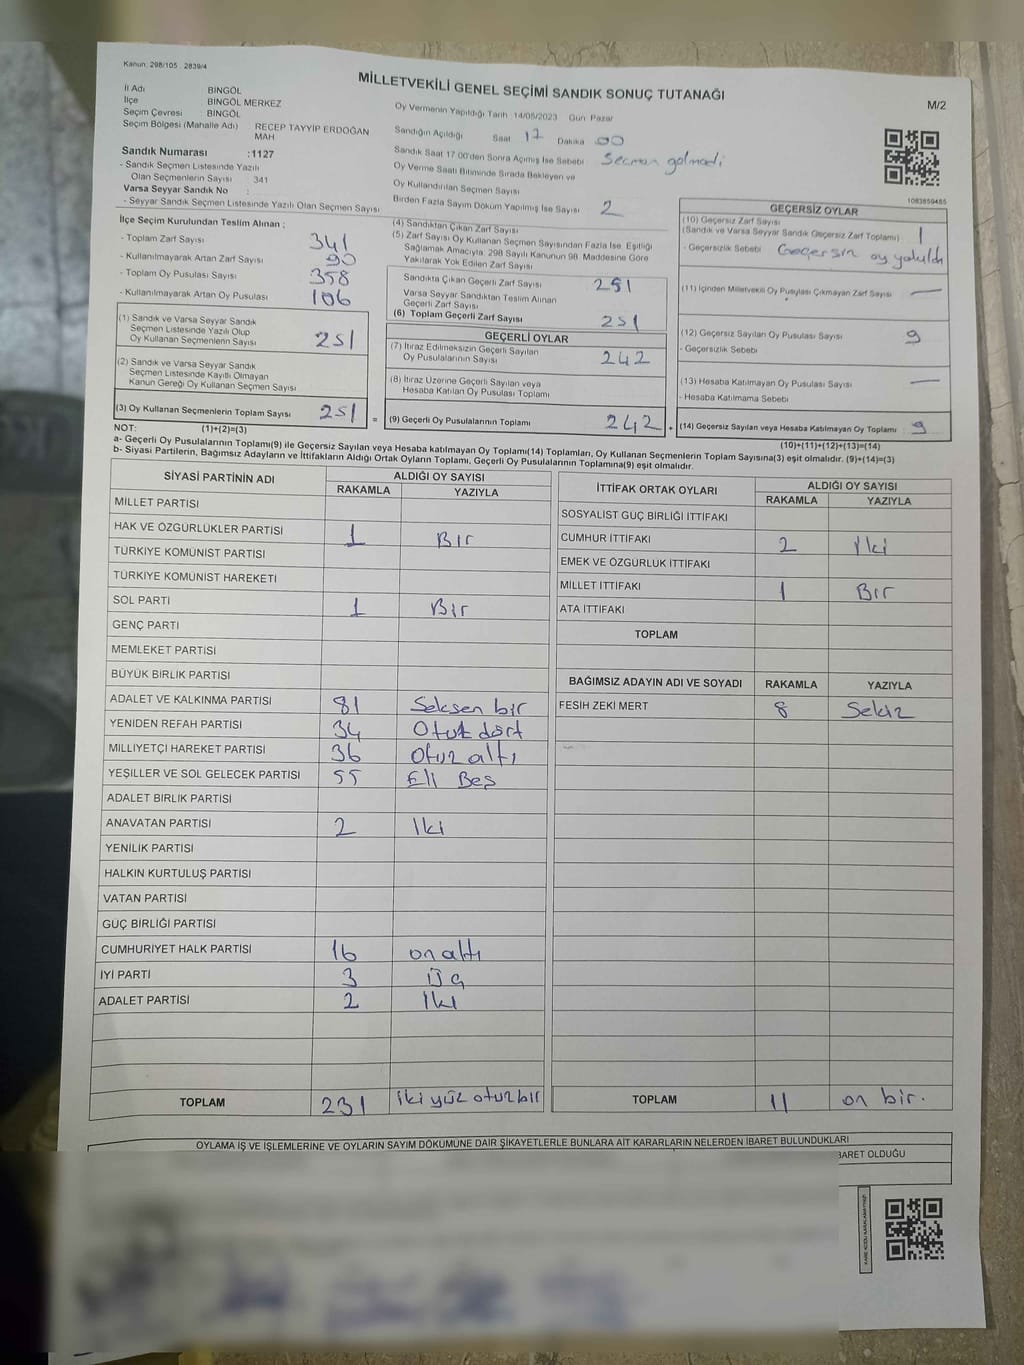 Kanun: 298/105 . 2839/4
MİLLETVEKİLİ GENEL SEÇİMİ SANDIK SONUÇ TUTANAĞI
M/2
İl Adı BİNGÖL
İlçe BİNGÖL MERKEZ
Seçim Çevresi BİNGÖL
Seçim Bölgesi (Mahalle Adı) RECEP TAYYİP ERDOĞAN MAH
Sandık Numarası :1127
- Sandık Seçmen Listesinde Yazılı
Olan Seçmenlerin Sayısı : 341
Varsa Seyyar Sandık No :
- Seyyar Sandık Seçmen Listesinde Yazılı Olan Seçmen Sayısı
Oy Vermenin Yapıldığı Tarih 14/05/2023 Gün Pazar
Sandığın Açıldığı Saat 17 Dakika 00
Sandık Saat 17.00'den Sonra Açılmış İse Sebebi Seçmen gelmedi
Oy Verme Saati Bitiminde Sırada Bekleyen ve
Oy Kullandırılan Seçmen Sayısı
Birden Fazla Sayım Döküm Yapılmış İse Sayısı 2
1083859485
İlçe Seçim Kurulundan Teslim Alınan ;
- Toplam Zarf Sayısı 341
- Kullanılmayarak Artan Zarf Sayısı 90
- Toplam Oy Pusulası Sayısı 358
- Kullanılmayarak Artan Oy Pusulası 106
(1) Sandık ve Varsa Seyyar Sandık
Seçmen Listesinde Yazılı Olup
Oy Kullanan Seçmenlerin Sayısı 251
(2) Sandık ve Varsa Seyyar Sandık
Seçmen Listesinde Kayıtlı Olmayan
Kanun Gereği Oy Kullanan Seçmen Sayısı
(3) Oy Kullanan Seçmenlerin Toplam Sayısı 251 =
(4) Sandıktan Çıkan Zarf Sayısı
(5) Zarf Sayısı Oy Kullanan Seçmen Sayısından Fazla İse, Eşitliği
Sağlamak Amacıyla, 298 Sayılı Kanunun 98. Maddesine Göre
Yakılarak Yok Edilen Zarf Sayısı
Sandıkta Çıkan Geçerli Zarf Sayısı 251
Varsa Seyyar Sandıktan Teslim Alınan
Geçerli Zarf Sayısı
(6) Toplam Geçerli Zarf Sayısı 251
GEÇERLİ OYLAR
(7) İtiraz Edilmeksizin Geçerli Sayılan
Oy Pusulalarının Sayısı 242
(8) İtiraz Üzerine Geçerli Sayılan veya
Hesaba Katılan Oy Pusulası Toplamı
(9) Geçerli Oy Pusulalarının Toplamı 242
GEÇERSİZ OYLAR
(10) Geçersiz Zarf Sayısı
(Sandık ve Varsa Seyyar Sandık Geçersiz Zarf Toplamı) 1
- Geçersizlik Sebebi Geçersin oy
(11) İçinden Milletvekili Oy Pusulası Çıkmayan Zarf Sayısı —
(12) Geçersiz Sayılan Oy Pusulası Sayısı 9
- Geçersizlik Sebebi
(13) Hesaba Katılmayan Oy Pusulası Sayısı —
- Hesaba Katılmama Sebebi
(14) Geçersiz Sayılan veya Hesaba Katılmayan Oy Toplamı 9
NOT: (1)+(2)=(3)
(10)+(11)+(12)+(13)=(14)
a- Geçerli Oy Pusulalarının Toplamı(9) ile Geçersiz Sayılan veya Hesaba katılmayan Oy Toplamı(14) Toplamları, Oy Kullanan Seçmenlerin Toplam Sayısına(3) eşit olmalıdır. (9)+(14)=(3)
b- Siyasi Partilerin, Bağımsız Adayların ve İttifakların Aldığı Ortak Oyların Toplamı, Geçerli Oy Pusulalarının Toplamına(9) eşit olmalıdır.
SİYASİ PARTİNİN ADI ALDIĞI OY SAYISI
RAKAMLA YAZIYLA
MİLLET PARTİSİ
HAK VE ÖZGÜRLÜKLER PARTİSİ 1 Bir
TÜRKİYE KOMÜNİST PARTİSİ
TÜRKİYE KOMÜNİST HAREKETİ
SOL PARTİ 1 Bir
GENÇ PARTİ
MEMLEKET PARTİSİ
BÜYÜK BİRLİK PARTİSİ
ADALET VE KALKINMA PARTİSİ 81 Seksen bir
YENİDEN REFAH PARTİSİ 34 Otuz dört
MİLLİYETÇİ HAREKET PARTİSİ 36 Otuz altı
YEŞİLLER VE SOL GELECEK PARTİSİ 55 Elli Beş
ADALET BİRLİK PARTİSİ
ANAVATAN PARTİSİ 2 İki
YENİLİK PARTİSİ
HALKIN KURTULUŞ PARTİSİ
VATAN PARTİSİ
GÜÇ BİRLİĞİ PARTİSİ
CUMHURİYET HALK PARTİSİ 16 on altı
İYİ PARTİ 3 Üç
ADALET PARTİSİ 2 İki
TOPLAM 231 iki yüz otuz bir
İTTİFAK ORTAK OYLARI ALDIĞI OY SAYISI
RAKAMLA YAZIYLA
SOSYALİST GÜÇ BİRLİĞİ İTTİFAKI
CUMHUR İTTİFAKI 2 İki
EMEK VE ÖZGÜRLÜK İTTİFAKI
MİLLET İTTİFAKI 1 Bir
ATA İTTİFAKI
TOPLAM
BAĞIMSIZ ADAYIN ADI VE SOYADI RAKAMLA YAZIYLA
FESİH ZEKİ MERT 8 Sekiz
TOPLAM 11 on bir.
OYLAMA İŞ VE İŞLEMLERİNE VE OYLARIN SAYIM DÖKÜMÜNE DAİR ŞİKAYETLERLE BUNLARA AİT KARARLARIN NELERDEN İBARET BULUNDUKLARI
BARET OLDUĞU